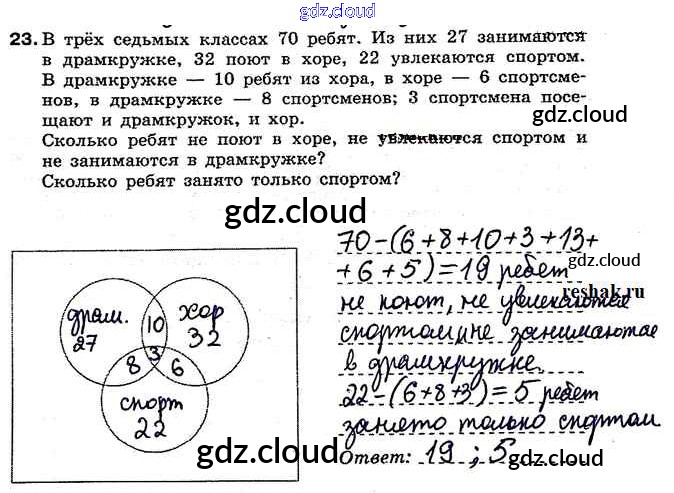 gdz.cloud
23. В трёх седьмых классах 70 ребят. Из них 27 занимаются
в драмкружке, 32 поют в хоре, 22 увлекаются спортом.
В драмкружке — 10 ребят из хора, в хоре — 6 спортсме-
нов, в драмкружке — 8 спортсменов; 3 спортсмена посе-
щают и драмкружок, и хор.
gdz.cloud
Сколько ребят не поют в хоре, не увлекаются спортом и
не занимаются в драмкружке?
Сколько ребят занято только спортом?
gdz.cloud
gdz.cloud
драм.
27
10
хор
32
3
8
6
спорт
22
gdz.cloud
70-(6+8+10+3+13+
gdz.cloud
+6+5)=19 ребят
reshak.ru
не поют, не увлекаются
спортом и не занимаются
в драмкружке.
22-(6+8+3)=5 ребят
занято только спортом
Ответ: 19 ; 5
gdz.cloud